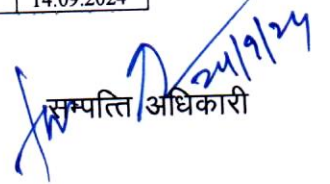 14.09.2024
24/9/24
सम्पत्ति अधिकारी